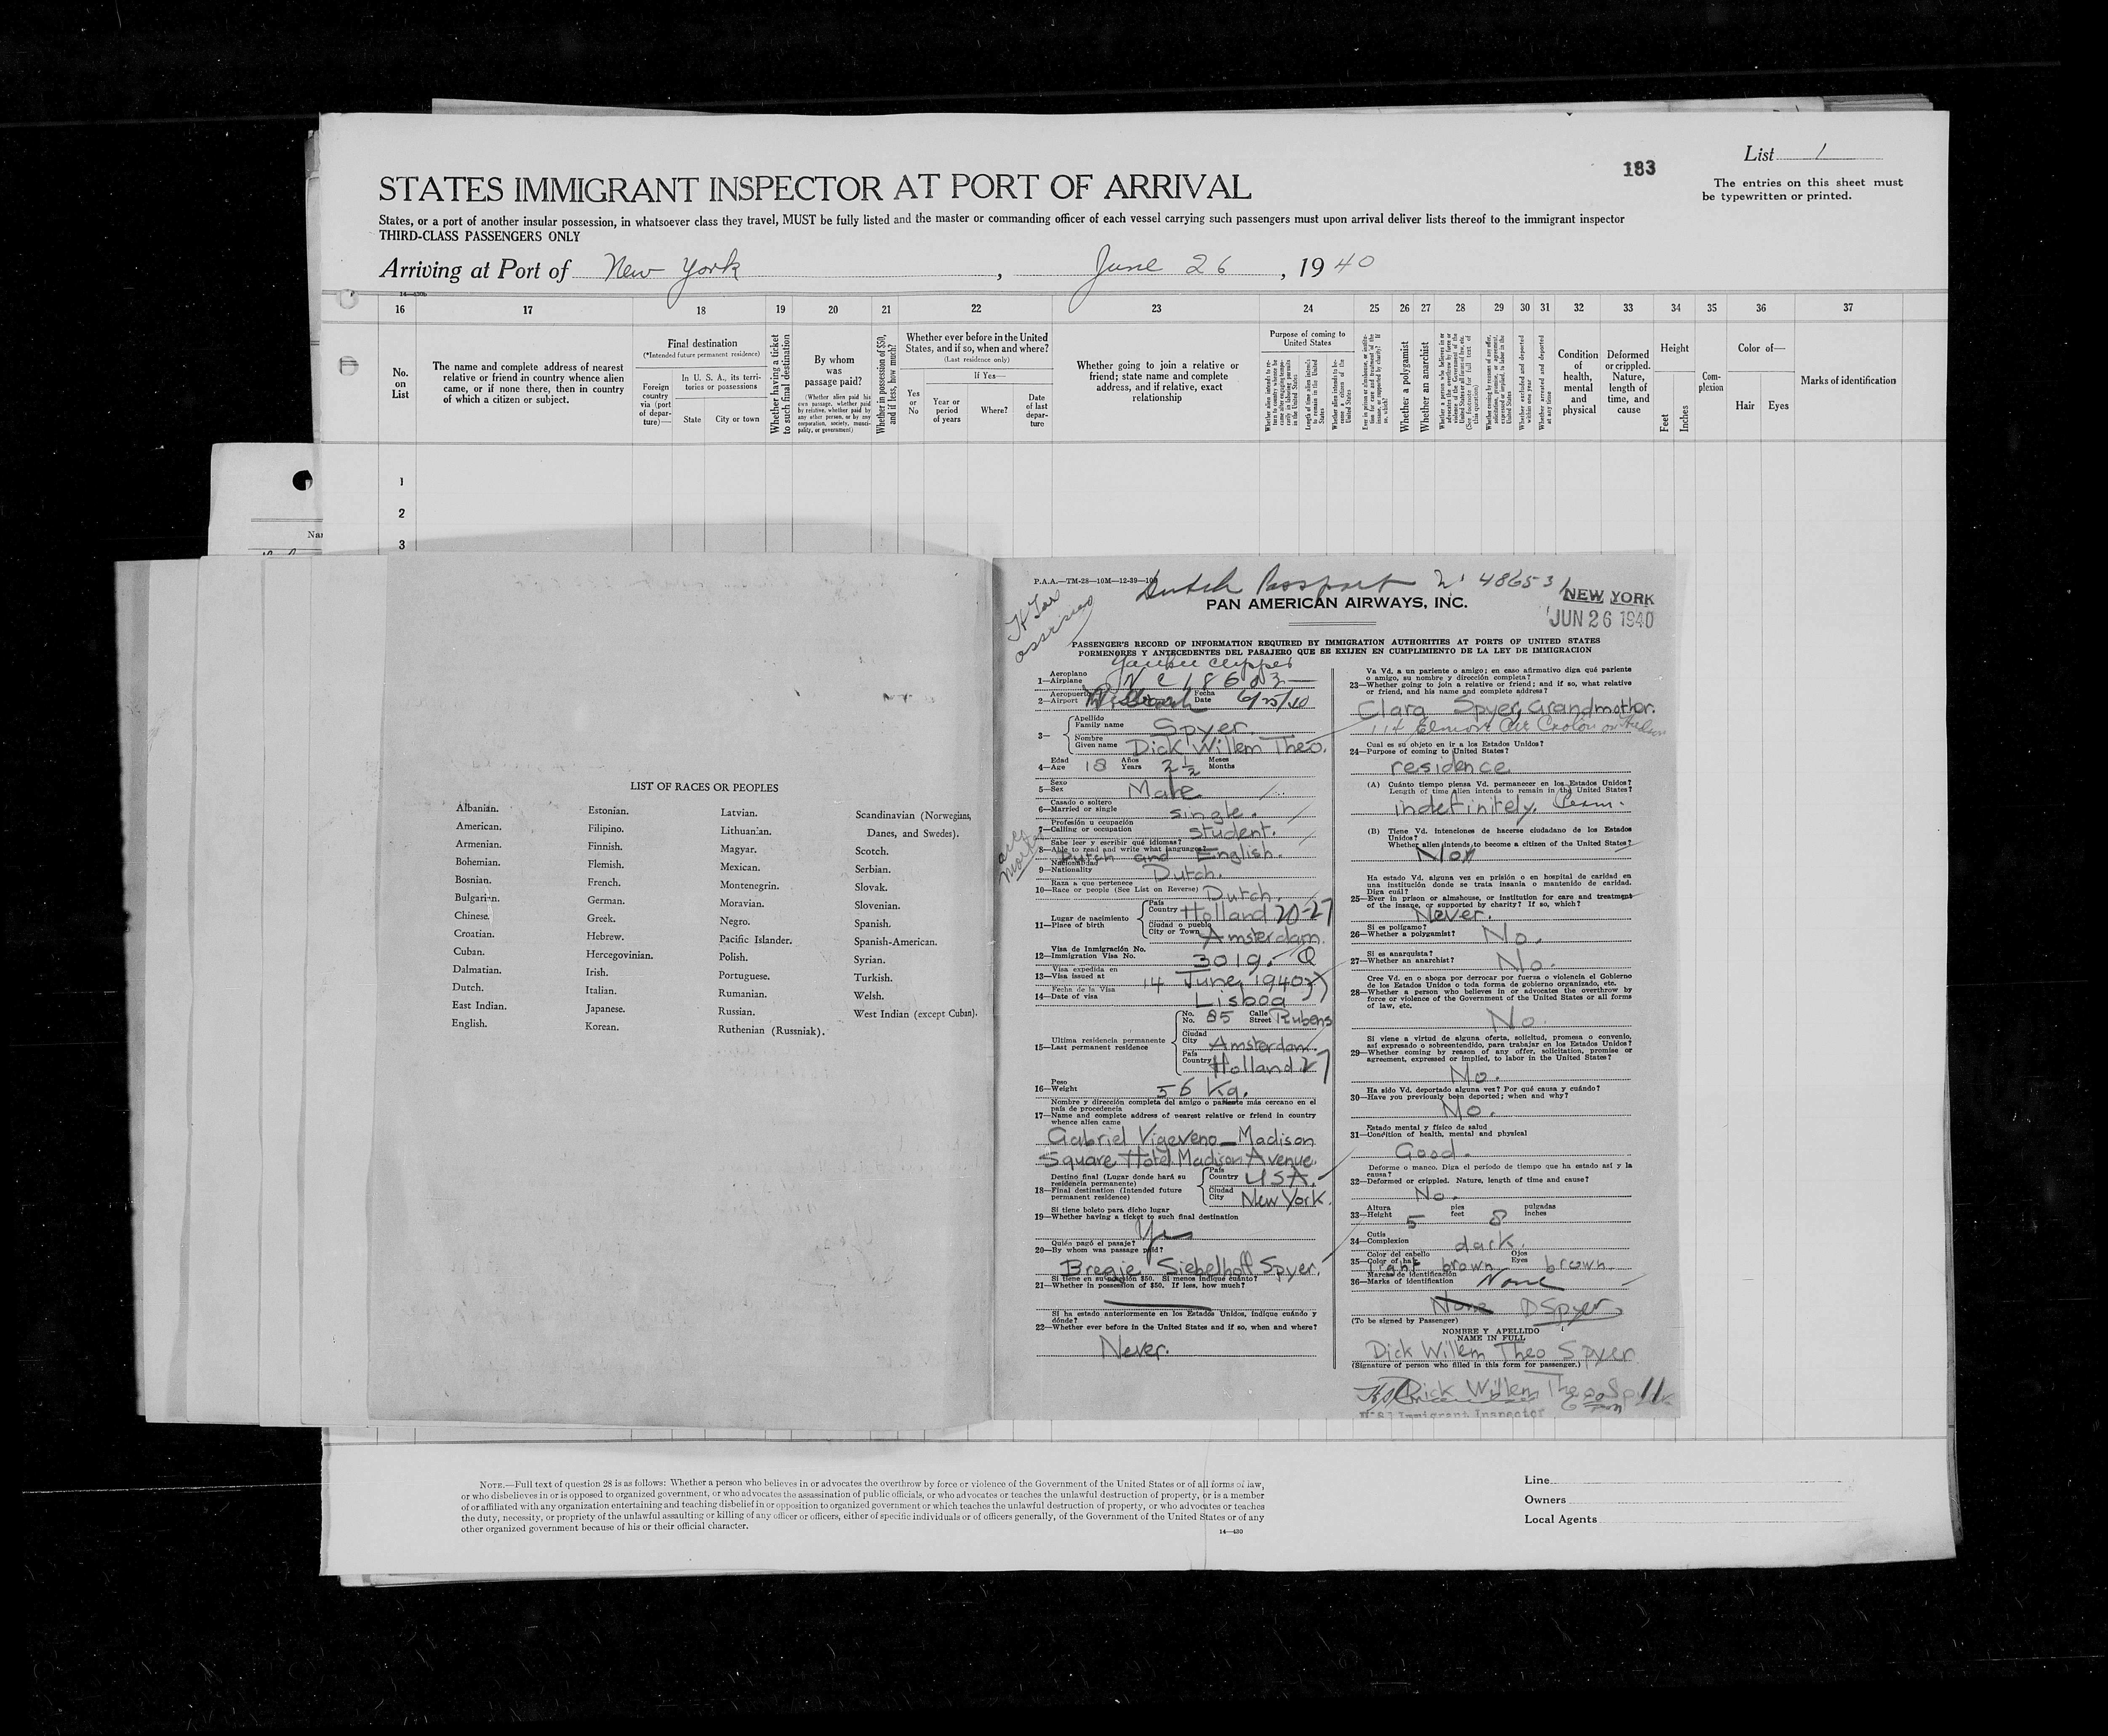 183
List 1
STATES IMMIGRANT INSPECTOR AT PORT OF ARRIVAL
The entries on this sheet must
be typewritten or printed.
States, or a port of another insular possession, in whatsoever class they travel, MUST be fully listed and the master or commanding officer of each vessel carrying such passengers must upon arrival deliver lists thereof to the immigrant inspector
THIRD-CLASS PASSENGERS ONLY
Arriving at Port of New York, June 26, 1940
16 17 18 19 20 21 22 23 24 25 26 27 28 29 30 31 32 33 34 35 36 37
No. on List
The name and complete address of nearest relative or friend in country whence alien came, or if none there, then in country of which a citizen or subject.
Final destination
(*Intended future permanent residence)
Foreign country via (port of departure)—
In U. S. A., its territories or possessions
State
City or town
Whether having a ticket to such final destination
By whom was passage paid?
(Whether alien paid his own passage, whether paid by relative, whether paid by any other person, or by any corporation, society, municipality, or government)
Whether in possession of $50, and if less, how much?
Whether ever before in the United States, and if so, when and where?
(Last residence only)
If Yes—
Yes or No
Year or period of years
Where?
Date of last departure
Whether going to join a relative or friend; state name and complete address, and if relative, exact relationship
Purpose of coming to United States
Length of time alien intends to remain in the United States
Whether alien intends to become a citizen of the United States
Whether a polygamist
Whether an anarchist
Whether excluded and deported within one year
Whether arrested and deported at any time
Condition of health, mental and physical
Deformed or crippled. Nature, length of time, and cause
Height
Feet
Inches
Complexion
Color of—
Hair
Eyes
Marks of identification
1
2
3
LIST OF RACES OR PEOPLES
Albanian.
American.
Armenian.
Bohemian.
Bosnian.
Bulgarian.
Chinese.
Croatian.
Cuban.
Dalmatian.
Dutch.
East Indian.
English.
Estonian.
Filipino.
Finnish.
Flemish.
French.
German.
Greek.
Hebrew.
Hercegovinian.
Irish.
Italian.
Japanese.
Korean.
Latvian.
Lithuanian.
Magyar.
Mexican.
Montenegrin.
Moravian.
Negro.
Pacific Islander.
Polish.
Portuguese.
Rumanian.
Russian.
Ruthenian (Russniak).
Scandinavian (Norwegians,
Danes, and Swedes).
Scotch.
Serbian.
Slovak.
Slovenian.
Spanish.
Spanish-American.
Syrian.
Turkish.
Welsh.
West Indian (except Cuban).
P.A.A.—TM-28—10M—12-39—
Dutch Passport No 48653
PAN AMERICAN AIRWAYS, INC.
NEW YORK
JUN 26 1940
PASSENGER'S RECORD OF INFORMATION REQUIRED BY IMMIGRATION AUTHORITIES AT PORTS OF UNITED STATES
PORMENORES Y ANTECEDENTES DEL PASAJERO QUE SE EXIJEN EN CUMPLIMIENTO DE LA LEY DE IMMIGRACION
Yankee Clipper
Aeroplano
1—Airplane NC 18603
Aeropuerto Fecha
2—Airport Date 6/25/40
Apellido
Family name Spyer
3—
Nombre
Given name Dick Willem Theo.
Edad Años Meses
4—Age 18 Years 2½ Months
Sexo
5—Sex Male
Casado o soltero
6—Married or single single.
Profesión u ocupación
7—Calling or occupation student.
Sabe leer y escribir qué idiomas?
8—Able to read and write what languages? Dutch and English.
Nacionalidad
9—Nationality Dutch.
Raza a que pertenece
10—Race or people (See List on Reverse) Dutch.
Lugar de nacimiento
11—Place of birth
País
Country Holland 20-27
Ciudad o pueblo
City or Town Amsterdam.
Visa de Inmigración No.
12—Immigration Visa No. 3019. Q
Visa expedida en
13—Visa issued at 14 June 1940
Fecha de la Visa
14—Date of visa Lisboa
Ultima residencia permanente
15—Last permanent residence
No. 85 Calle Street Rubens
Ciudad
City Amsterdam.
País
Country Holland 27
Peso
16—Weight 56 Kg.
Nombre y dirección completa del amigo o pariente más cercano en el
país de procedencia
17—Name and complete address of nearest relative or friend in country
whence alien came
Gabriel Vigeveno - Madison
Square Hotel Madison Avenue.
Destino final (Lugar donde hará su
residencia permanente)
18—Final destination (Intended future
permanent residence)
País
Country USA.
Ciudad
City New York.
Si tiene boleto para dicho lugar
19—Whether having a ticket to such final destination
Yes
Quién pagó el pasaje?
20—By whom was passage paid?
Bregie Siebelhoff Spyer.
Si tiene en su posesión $50. Si menos indique cuánto?
21—Whether in possession of $50. If less, how much?
Si ha estado anteriormente en los Estados Unidos, indique cuándo y
dónde?
22—Whether ever before in the United States and if so, when and where?
Never.
Va Vd. a un pariente o amigo; en caso afirmativo diga qué pariente
o amigo, su nombre y dirección completa?
23—Whether going to join a relative or friend; and if so, what relative
or friend, and his name and complete address?
Clara Spyer, Grandmother.
114 Elmore Ave Croton on Hudson
Cual es su objeto en ir a los Estados Unidos?
24—Purpose of coming to United States?
residence
(A) Cuánto tiempo piensa Vd. permanecer en los Estados Unidos?
Length of time alien intends to remain in the United States?
indefinitely. Perm.
(B) Tiene Vd. intenciones de hacerse ciudadano de los Estados
Unidos?
Whether alien intends to become a citizen of the United States?
Ha estado Vd. alguna vez en prisión o en hospital de caridad en
una institución donde se trata insania o mantenido de caridad.
Diga cuál?
25—Ever in prison or almshouse, or institution for care and treatment
of the insane, or supported by charity? If so, which?
Never.
Si es polígamo?
26—Whether a polygamist? No.
Si es anarquista?
27—Whether an anarchist? No.
Cree Vd. en o aboga por derrocar por fuerza o violencia el Gobierno
de los Estados Unidos o toda forma de gobierno organizado, etc.
28—Whether a person who believes in or advocates the overthrow by
force or violence of the Government of the United States or all forms
of law, etc.
No.
Si viene a virtud de alguna oferta, solicitud, promesa o convenio,
así expresado o sobreentendido, para trabajar en los Estados Unidos?
29—Whether coming by reason of any offer, solicitation, promise or
agreement, expressed or implied, to labor in the United States?
No.
Ha sido Vd. deportado alguna vez? Por qué causa y cuándo?
30—Have you previously been deported; when and why?
No.
Estado mental y físico de salud
31—Condition of health, mental and physical
Good.
Deforme o manco. Diga el período de tiempo que ha estado así y la
causa?
32—Deformed or crippled. Nature, length of time and cause?
No.
Altura pies pulgadas
33—Height 5 feet 8 inches
Cutis
34—Complexion dark.
Color del cabello Ojos
35—Color of hair light brown Eyes brown
Marcas de identificación
36—Marks of identification None
None DSpyer
(To be signed by Passenger)
NOMBRE Y APELLIDO
NAME IN FULL
Dick Willem Theo Spyer
(Signature of person who filled in this form for passenger.)
Dick Willem Theo Spyer
U.S. Immigrant Inspector
NOTE.—Full text of question 28 is as follows: Whether a person who believes in or advocates the overthrow by force or violence of the Government of the United States or of all forms of law,
or who disbelieves in or is opposed to organized government, or who advocates the assassination of public officials, or who advocates or teaches the unlawful destruction of property, or is a member
of or affiliated with any organization entertaining and teaching disbelief in or opposition to organized government or which teaches the unlawful destruction of property, or who advocates or teaches
the duty, necessity, or propriety of the unlawful assaulting or killing of any officer or officers, either of specific individuals or of officers generally, of the Government of the United States or of any
other organized government because of his or their official character.
14—430
Line
Owners
Local Agents